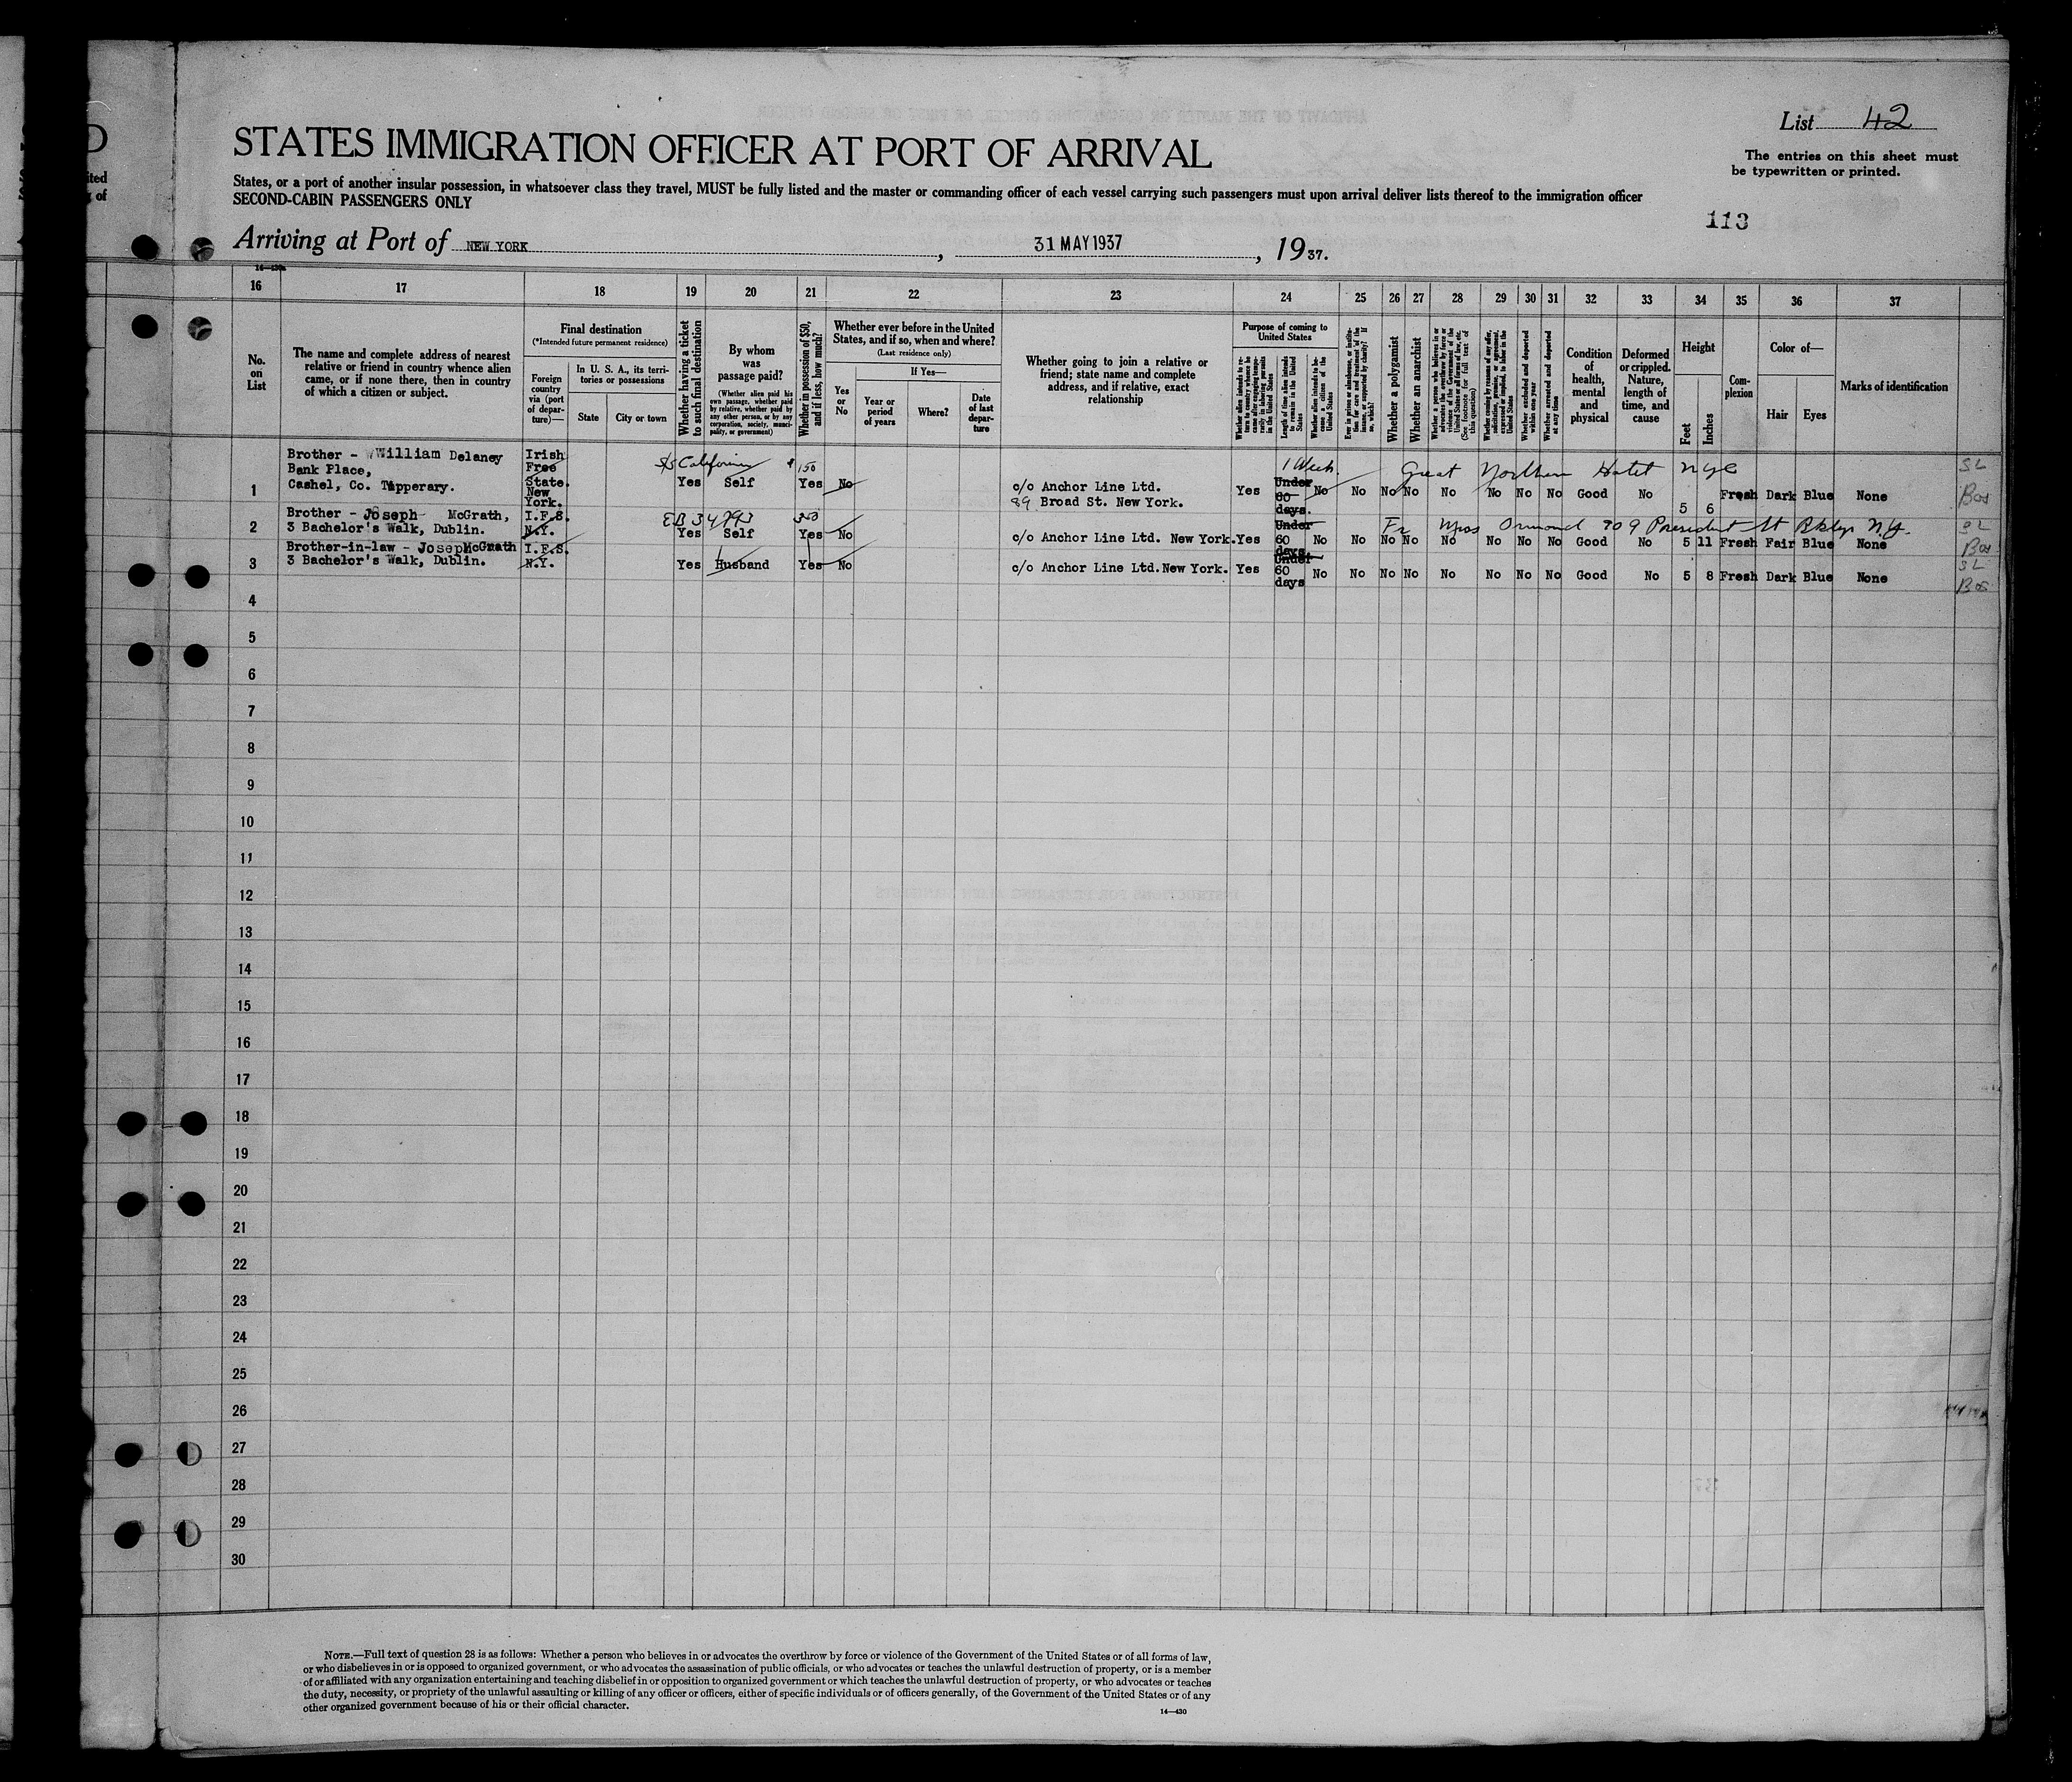 List 42
STATES IMMIGRATION OFFICER AT PORT OF ARRIVAL
The entries on this sheet must
be typewritten or printed.
States, or a port of another insular possession, in whatsoever class they travel, MUST be fully listed and the master or commanding officer of each vessel carrying such passengers must upon arrival deliver lists thereof to the immigration officer
SECOND-CABIN PASSENGERS ONLY
113
Arriving at Port of NEW YORK, 31 MAY 1937, 1937.
16 17 18 19 20 21 22 23 24 25 26 27 28 29 30 31 32 33 34 35 36 37
No. on List
The name and complete address of nearest
relative or friend in country whence alien
came, or if none there, then in country
of which a citizen or subject.
Final destination
(*Intended future permanent residence)
Foreign country via (port of departure)—
In U. S. A., its territories or possessions
State
City or town
Whether having a ticket to such final destination
By whom was passage paid?
(Whether alien paid his own passage, whether paid by relative, whether paid by any other person, or by any corporation, society, municipality, or government)
Whether in possession of $50, and if less, how much?
Whether ever before in the United States, and if so, when and where?
(Last residence only)
Yes or No
If Yes—
Year or period of years
Where?
Date of last departure
Whether going to join a relative or
friend; state name and complete
address, and if relative, exact
relationship
Purpose of coming to United States
Whether alien intends to return to country whence he came after engaging temporarily in laboring pursuits in the United States
Length of time alien intends to remain in the United States
Whether alien intends to become a citizen of the United States
Ever in prison or almshouse, or institution for care and treatment of the insane, or supported by charity? If so, which?
Whether a polygamist
Whether an anarchist
Whether a person who believes in or advocates the overthrow by force or violence of the Government of the United States or all forms of law, etc. (See footnote for full text of this question)
Whether coming by reasons of any offer, solicitation, promise, or agreement, expressed or implied, to labor in the United States
Whether excluded and deported within one year
Whether arrested and deported at any time
Condition of health, mental and physical
Deformed or crippled. Nature, length of time, and cause
Height
Feet
Inches
Complexion
Color of—
Hair
Eyes
Marks of identification
1 Brother - William Delaney
Bank Place,
Cashel, Co. Tipperary.
Irish Free State. New York.
Yes Self Yes No
$150
c/o Anchor Line Ltd.
89 Broad St. New York.
Yes Under 60 days. No No No No No No No No Good No 5 6 Fresh Dark Blue None
1 Week. Great Northern Hotel NYC
SL
Bos
2 Brother - Joseph McGrath,
3 Bachelor's Walk, Dublin.
I.F.S. N.Y.
Yes Self Yes No
c/o Anchor Line Ltd. New York. Yes Under 60 days No No No No No No No No Good No 5 11 Fresh Fair Blue None
Fr Miss Ormond 709 President St Bklyn N.Y.
SL
Bos
3 Brother-in-law - Joseph McGrath
3 Bachelor's Walk, Dublin.
I.F.S. N.Y.
Yes Husband Yes No
c/o Anchor Line Ltd. New York. Yes Under 60 days No No No No No No No No Good No 5 8 Fresh Dark Blue None
SL
Bos
4
5
6
7
8
9
10
11
12
13
14
15
16
17
18
19
20
21
22
23
24
25
26
27
28
29
30
NOTE.—Full text of question 28 is as follows: Whether a person who believes in or advocates the overthrow by force or violence of the Government of the United States or of all forms of law,
or who disbelieves in or is opposed to organized government, or who advocates the assassination of public officials, or who advocates or teaches the unlawful destruction of property, or is a member
of or affiliated with any organization entertaining and teaching disbelief in or opposition to organized government or which teaches the unlawful destruction of property, or who advocates or teaches
the duty, necessity, or propriety of the unlawful assaulting or killing of any officer or officers, either of specific individuals or of officers generally, of the Government of the United States or of any
other organized government because of his or their official character.
14—430